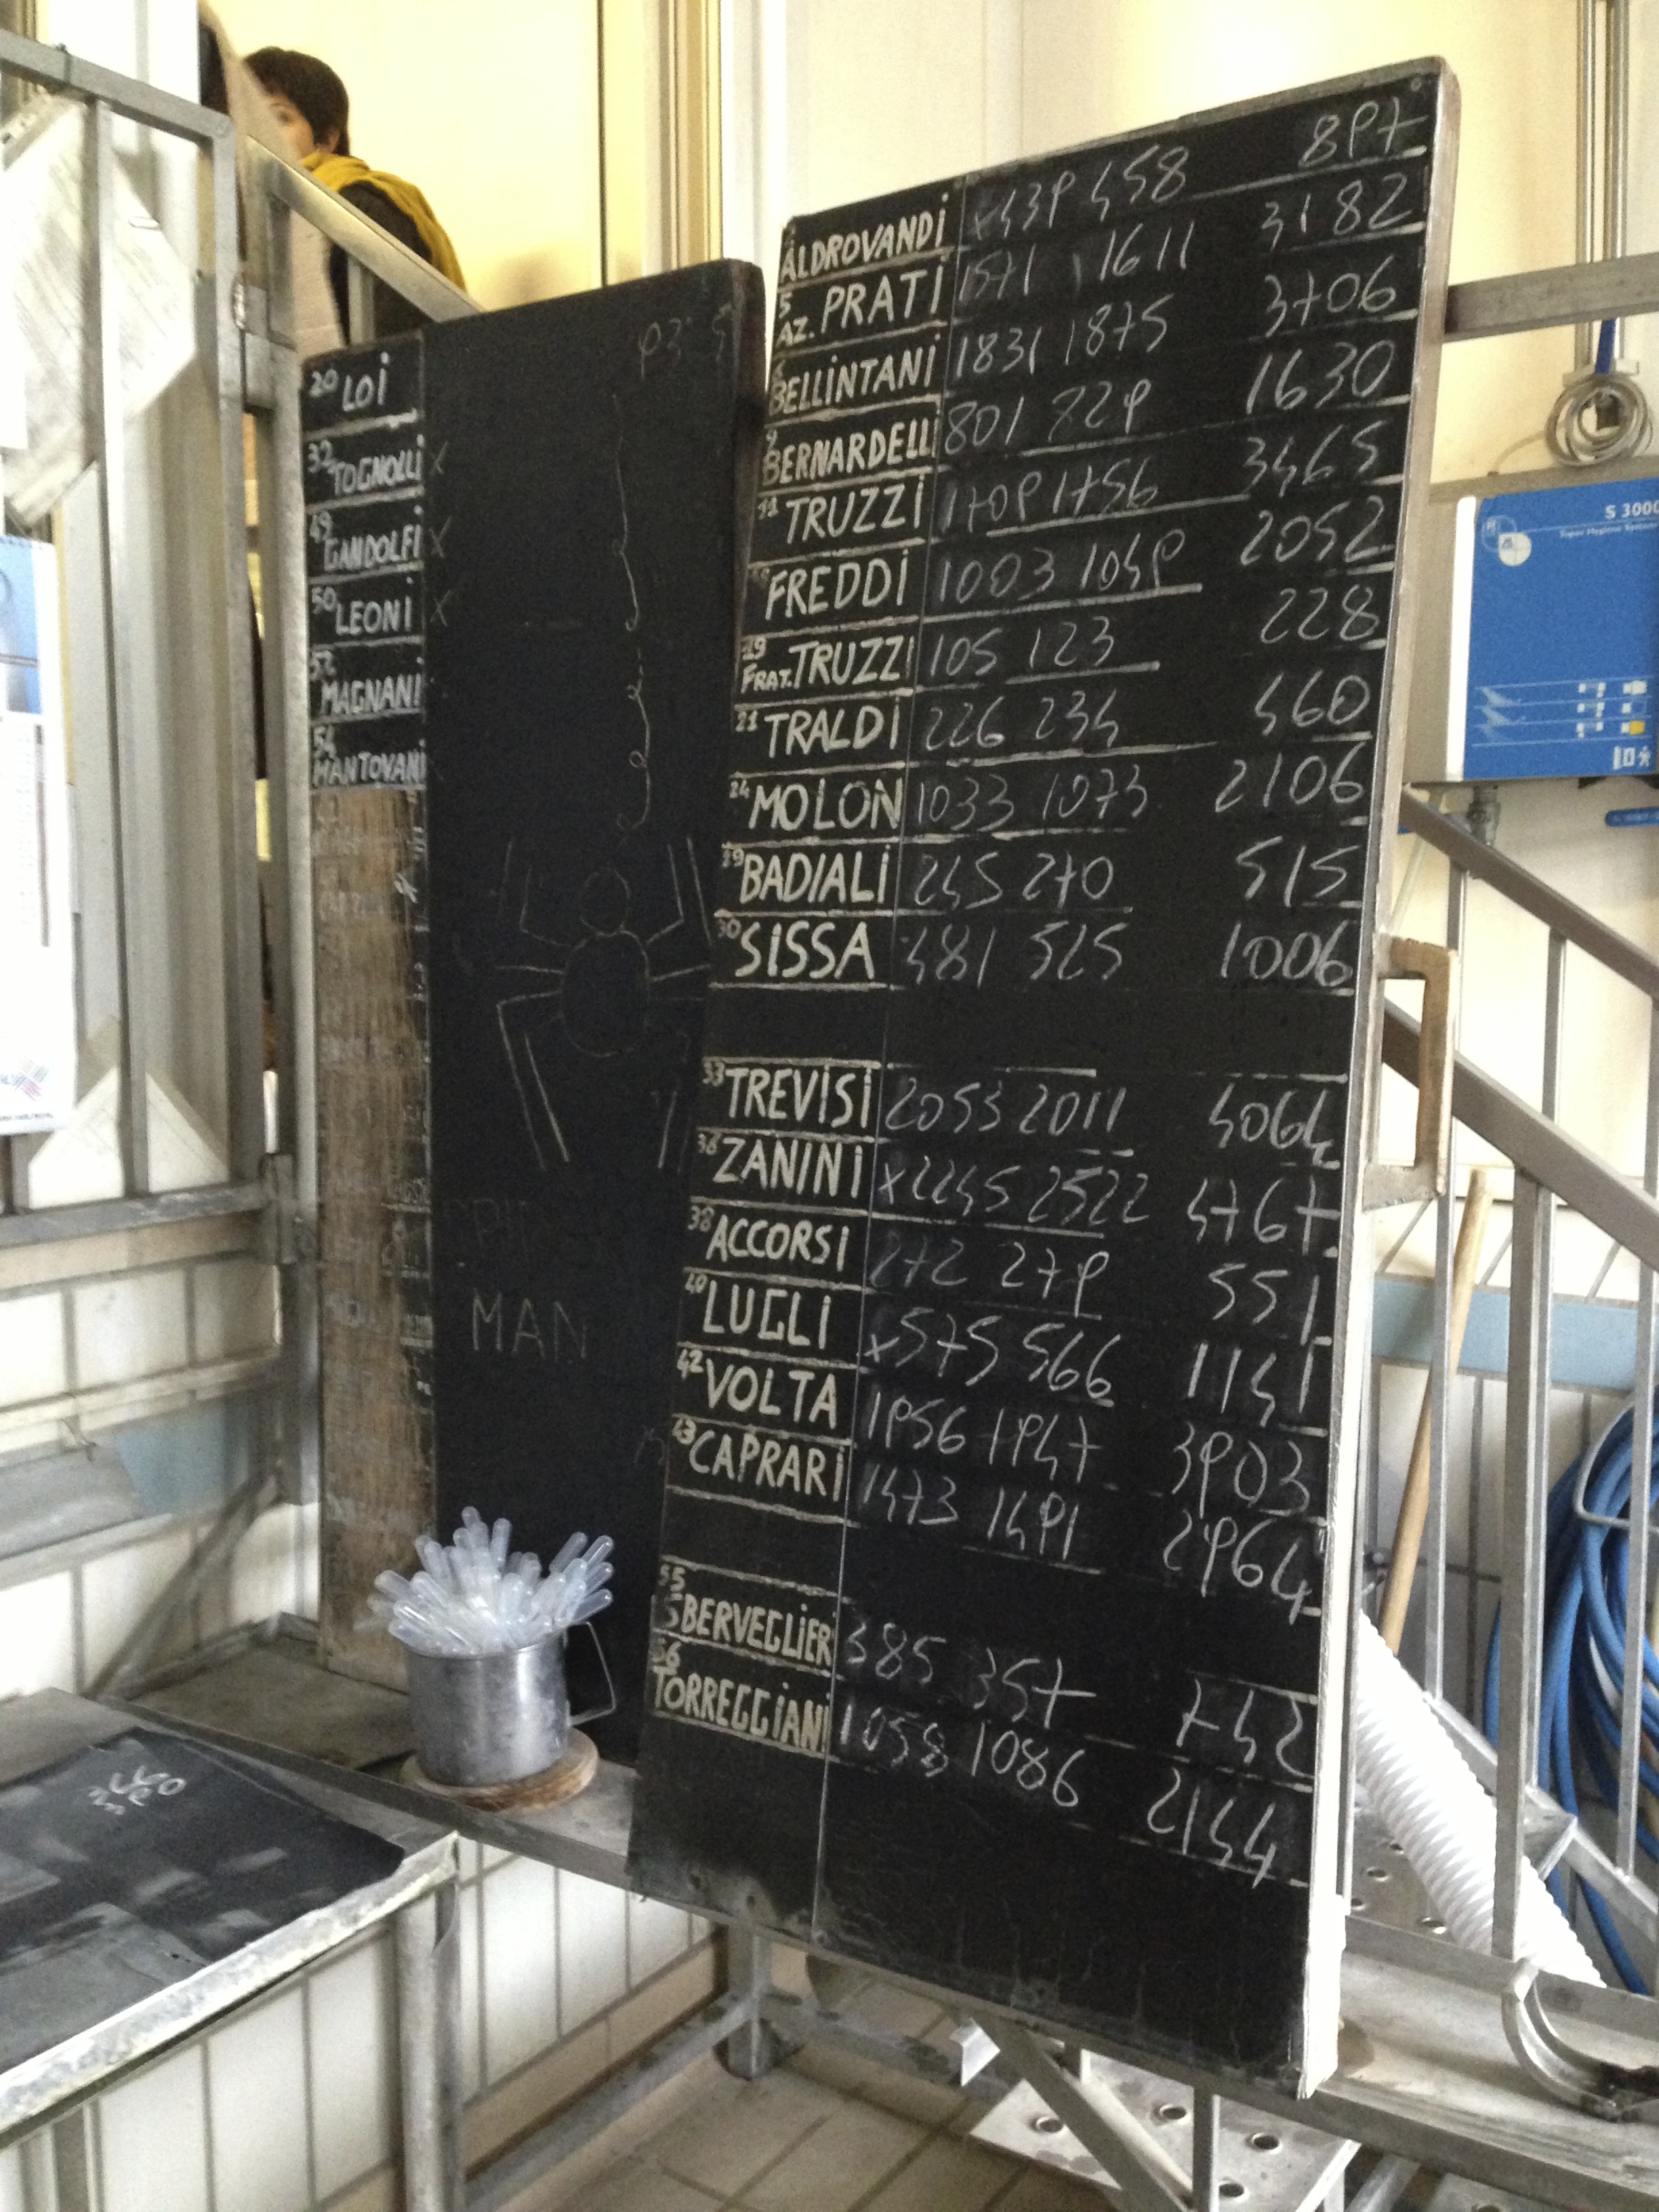 20 LOI
32 TOGNOLLI X
49 GANDOLFI X
50 LEONI X
52 MAGNANI
54 MANTOVANI
MAN
ALDROVANDI x439 458 897
5 AZ. PRATI 1571 1611 3182
BELLINTANI 1831 1875 3706
9 BERNARDELLI 801 829 1630
11 TRUZZI 1709 1756 3465
FREDDI 1003 1049 2052
19 FRAT. TRUZZI 105 123 228
21 TRALDI 226 234 460
24 MOLON 1033 1073 2106
29 BADIALI 245 270 515
30 SISSA 481 525 1006
33 TREVISI 2053 2011 4064
36 ZANINI x2245 2522 4767
38 ACCORSI 272 279 551
40 LUGLI x575 566 1141
42 VOLTA 1956 1947 3903
43 CAPRARI 1473 1491 2964
55 BERVEGLIERI 385 357 742
56 TORREGGIANI 1058 1086 2144
S 3000